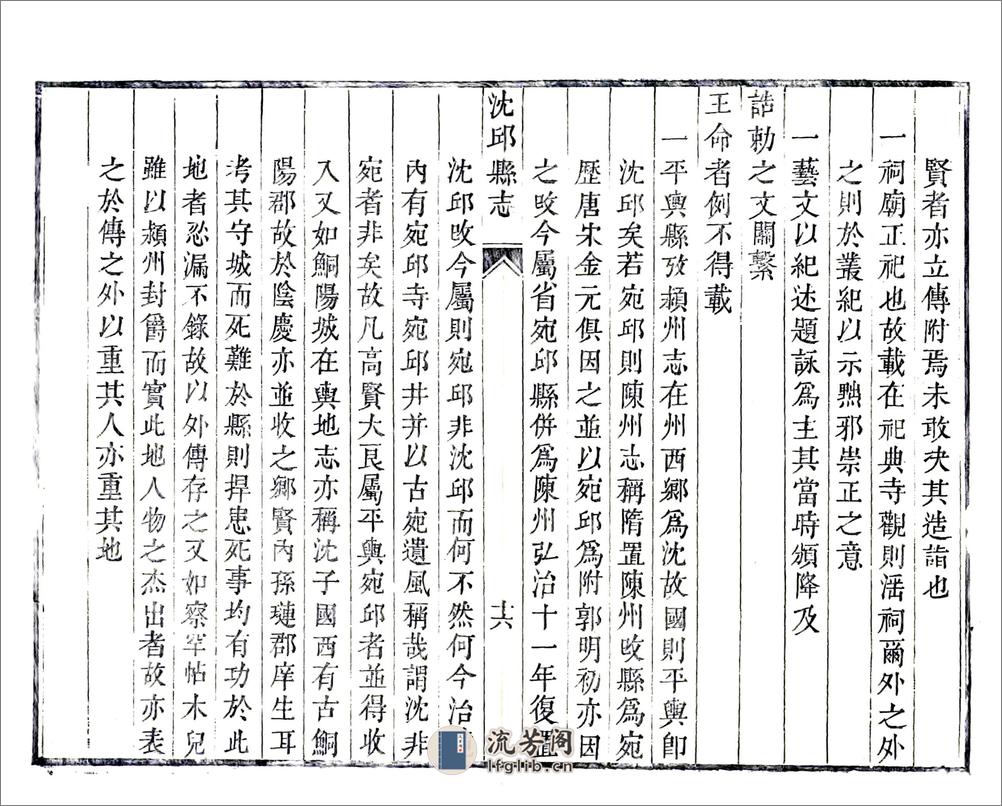 賢者亦立傳附焉未敢夬其造詣也
一祠廟正祀也故載在祀典寺觀則滛祠爾外之外
之則於叢紀以示黜邪崇正之意
一藝文以紀述題詠爲主其當時頒降及
誥勅之文關繫
王命者例不得載
一平輿縣攷頴州志在州西鄉爲沈故國則平輿卽
沈邱矣若宛邱則陳州志稱隋置陳州改縣爲宛
歷唐宋金元俱因之並以宛邱爲附郭明初亦因
之攺今屬省宛邱縣併爲陳州弘治十一年復置
沈邱縣志
十六
沈邱攺今屬則宛邱非沈邱而何不然何今治
內有宛邱寺宛邱井并以古宛遺風稱哉謂沈非
宛者非矣故凡高賢大良屬平輿宛邱者並得收
入又如鮦陽城在輿地志亦稱沈子國西有古鮦
陽郡故於陰慶亦並收之鄉賢內孫璉郡庠生耳
考其守城而死難於縣則捍患死事均有功於此
地者恐漏不錄故以外傳存之又如察罕帖木兒
雖以頴州封爵而實此地人物之杰出者故亦表
之於傳之外以重其人亦重其地
流芳閣
lfglib.cn